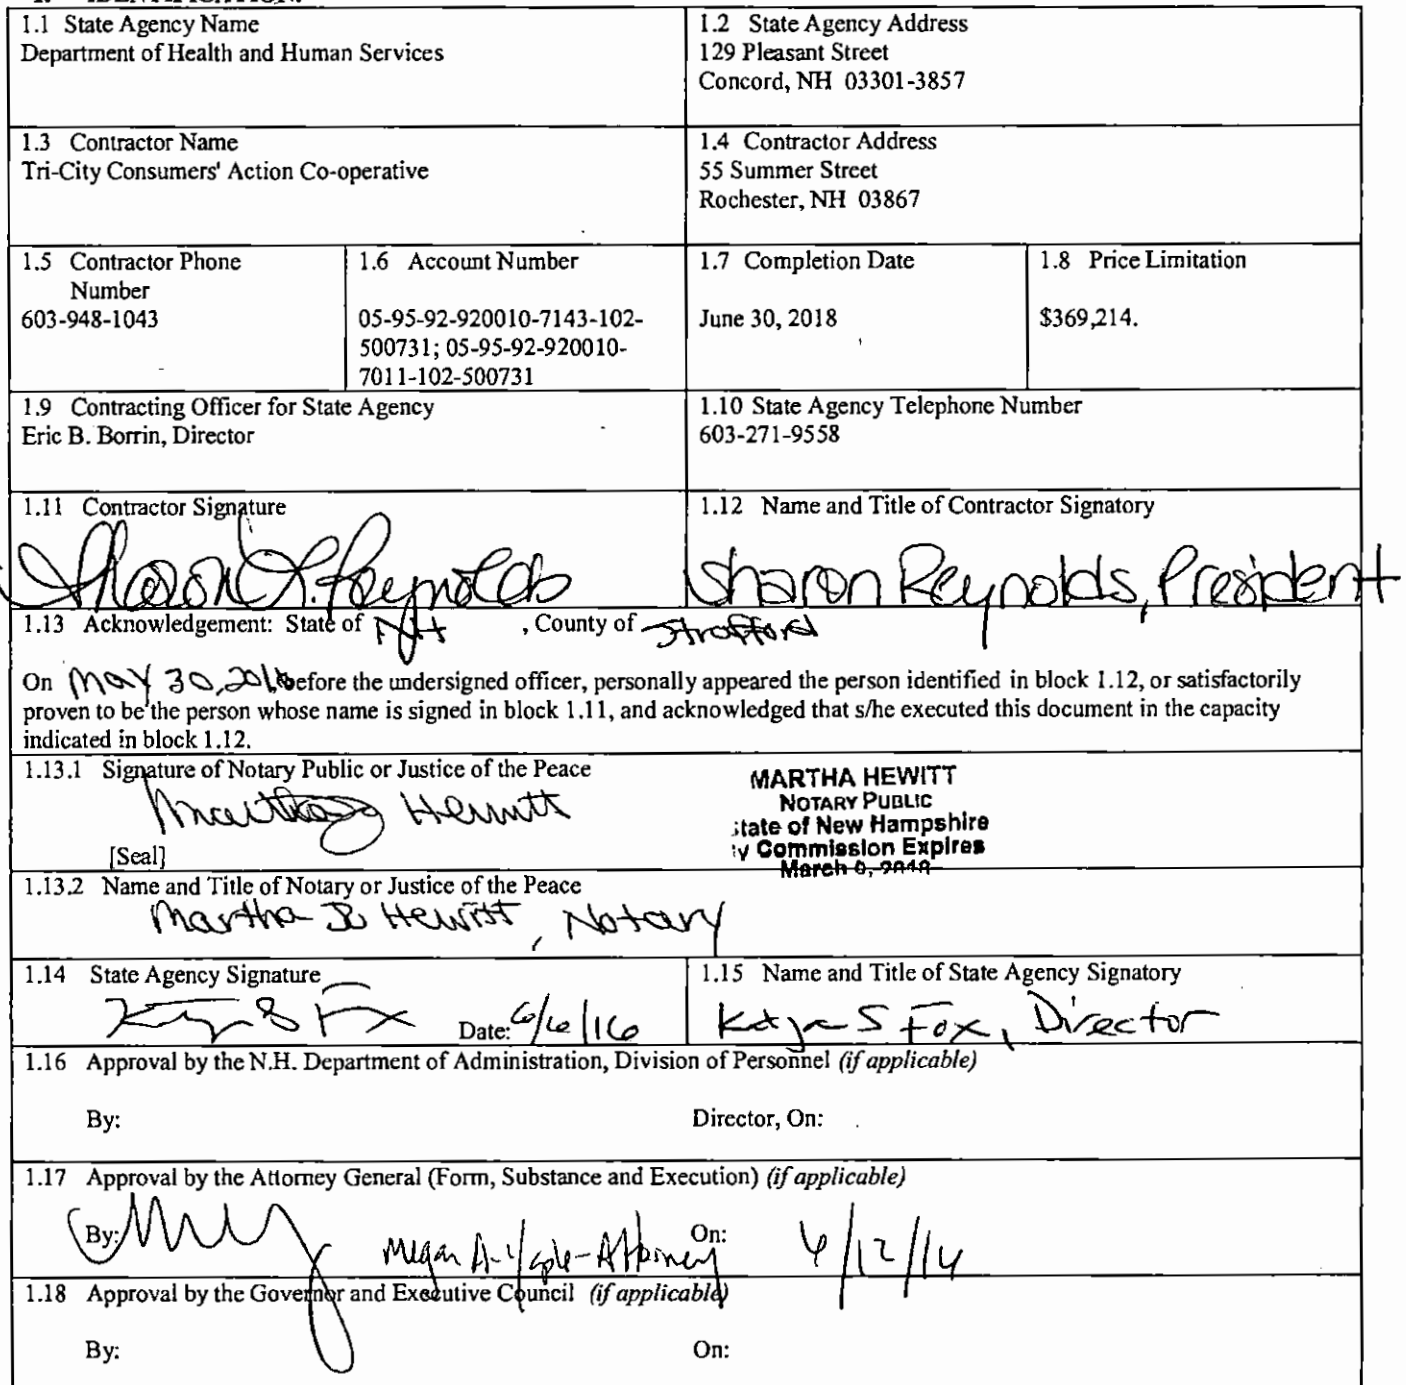 1.1 State Agency Name
Department of Health and Human Services
1.2 State Agency Address
129 Pleasant Street
Concord, NH 03301-3857
1.3 Contractor Name
Tri-City Consumers' Action Co-operative
1.4 Contractor Address
55 Summer Street
Rochester, NH 03867
1.5 Contractor Phone
Number
603-948-1043
1.6 Account Number
05-95-92-920010-7143-102-
500731; 05-95-92-920010-
7011-102-500731
1.7 Completion Date
June 30, 2018
1.8 Price Limitation
$369,214.
1.9 Contracting Officer for State Agency
Eric B. Borrin, Director
1.10 State Agency Telephone Number
603-271-9558
1.11 Contractor Signature
Sharon L. Reynolds
1.12 Name and Title of Contractor Signatory
Sharon Reynolds, President
1.13 Acknowledgement: State of NH , County of Strafford
On May 30, 2016 before the undersigned officer, personally appeared the person identified in block 1.12, or satisfactorily
proven to be the person whose name is signed in block 1.11, and acknowledged that s/he executed this document in the capacity
indicated in block 1.12.
1.13.1 Signature of Notary Public or Justice of the Peace
Martha Hewitt
[Seal]
MARTHA HEWITT
NOTARY PUBLIC
State of New Hampshire
Commission Expires
March
1.13.2 Name and Title of Notary or Justice of the Peace
Martha Hewitt, Notary
1.14 State Agency Signature
Date: 6/6/16
1.15 Name and Title of State Agency Signatory
Katja S Fox, Director
1.16 Approval by the N.H. Department of Administration, Division of Personnel (if applicable)
By: Director, On:
1.17 Approval by the Attorney General (Form, Substance and Execution) (if applicable)
By: Megan A. Yaple - Attorney On: 6/12/16
1.18 Approval by the Governor and Executive Council (if applicable)
By: On: